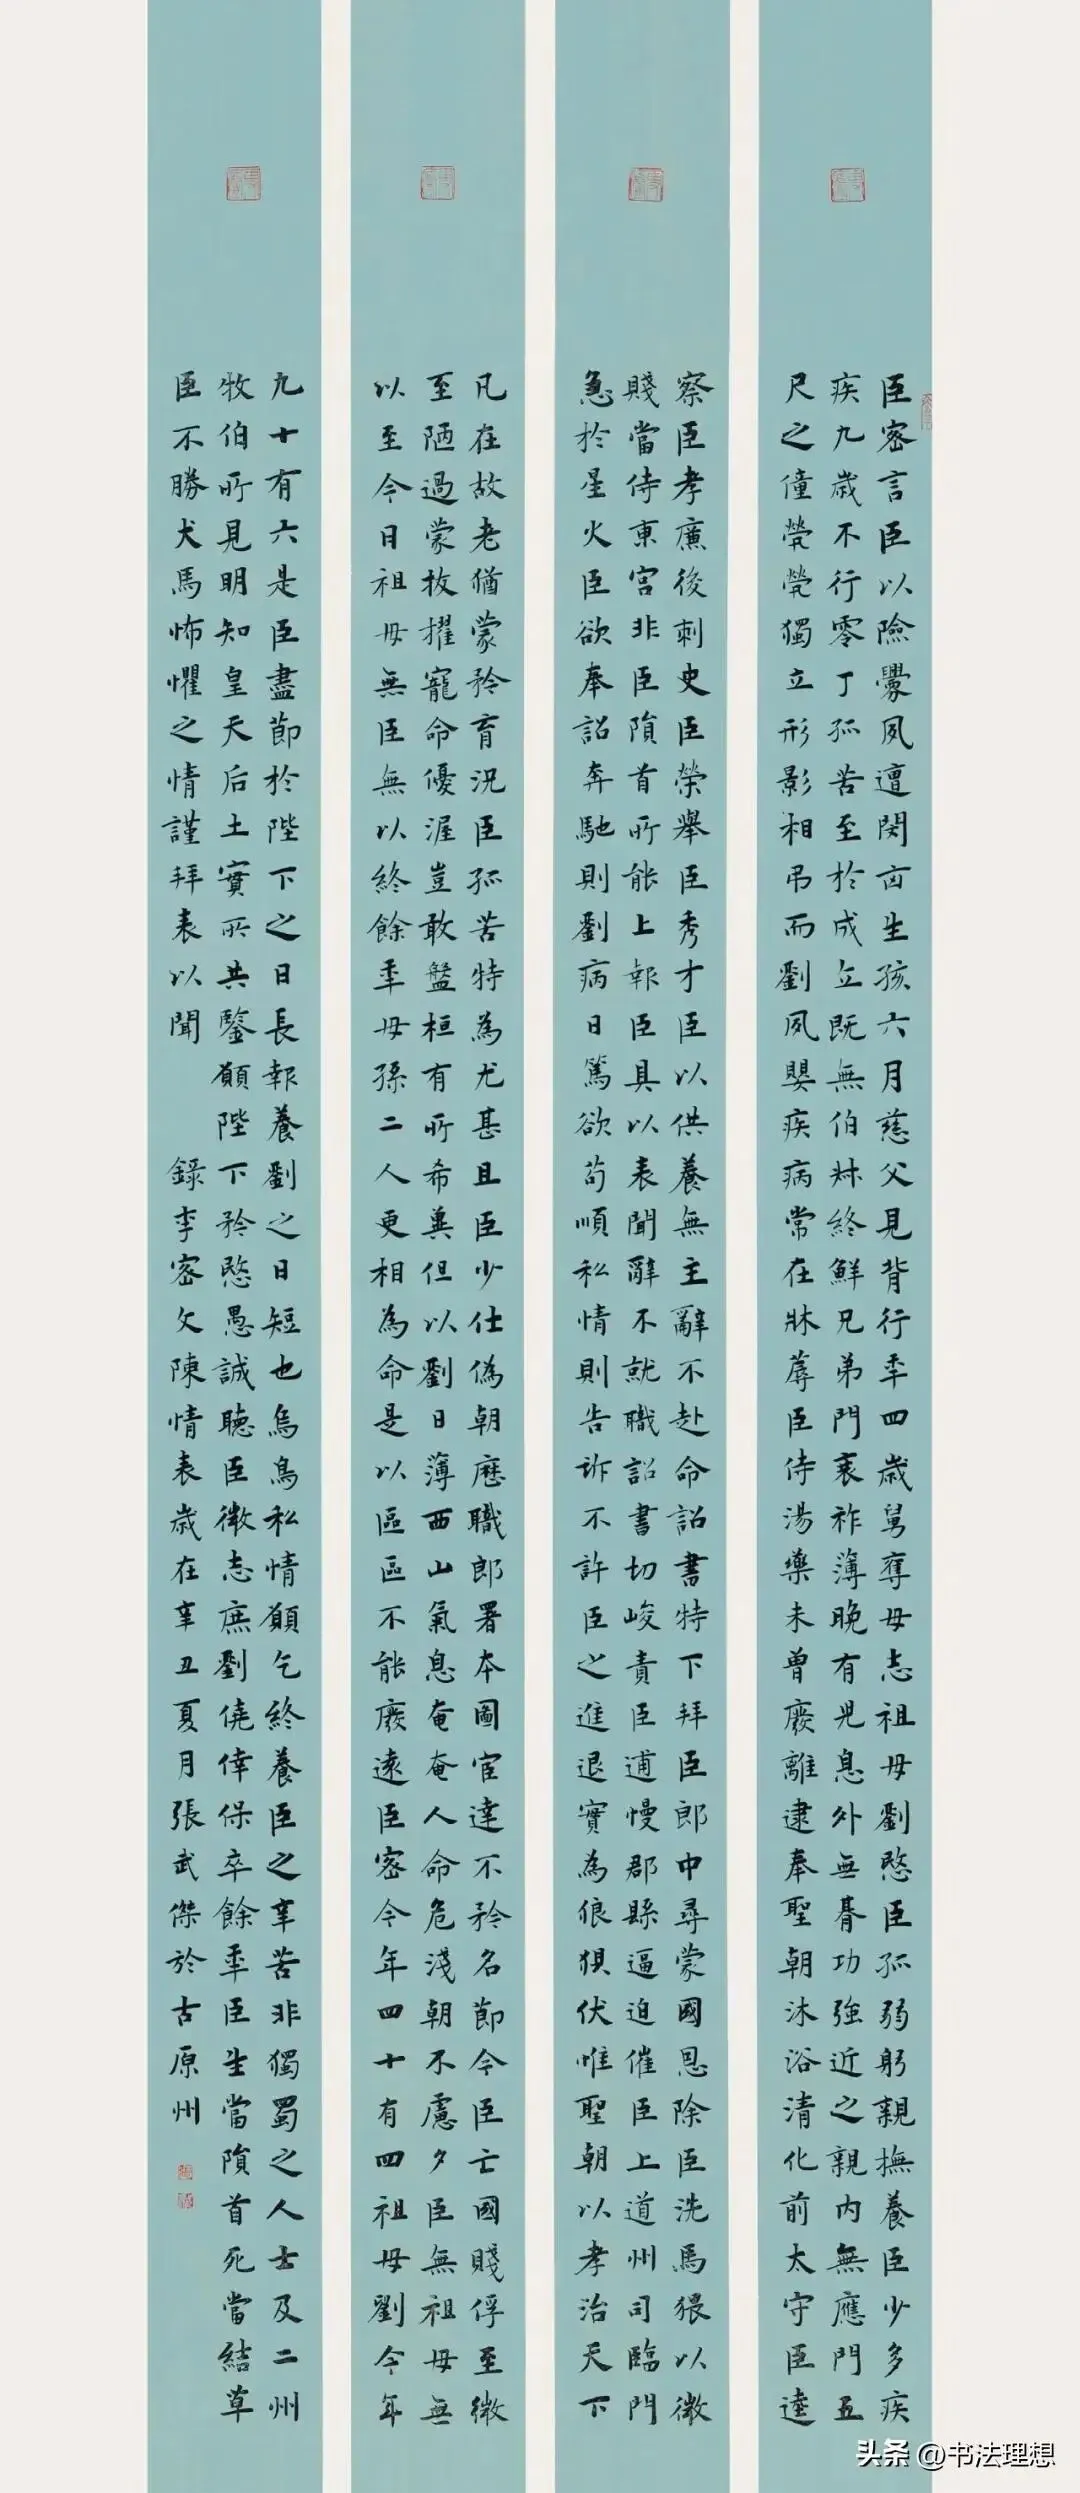 臣密言臣以險釁夙遭閔凶生孩六月慈父見背行年四歲舅奪母志祖母劉愍臣孤弱躬親撫養臣少多疾
疾九歲不行零丁孤苦至於成立既無伯叔終鮮兄弟門衰祚薄晚有兒息外無朞功強近之親內無應門五
尺之僮煢煢獨立形影相弔而劉夙嬰疾病常在牀蓐臣侍湯藥未曾廢離逮奉聖朝沐浴清化前太守臣逵
察臣孝廉後刺史臣榮舉臣秀才臣以供養無主辭不赴命詔書特下拜臣郎中尋蒙國恩除臣洗馬猥以微
賤當侍東宮非臣隕首所能上報臣具以表聞辭不就職詔書切峻責臣逋慢郡縣逼迫催臣上道州司臨門
急於星火臣欲奉詔奔馳則劉病日篤欲苟順私情則告訴不許臣之進退實為狼狽伏惟聖朝以孝治天下
凡在故老猶蒙矜育況臣孤苦特為尤甚且臣少仕偽朝歷職郎署本圖宦達不矜名節今臣亡國賤俘至微
至陋過蒙拔擢寵命優渥豈敢盤桓有所希冀但以劉日薄西山氣息奄奄人命危淺朝不慮夕臣無祖母無
以至今日祖母無臣無以終餘年母孫二人更相為命是以區區不能廢遠臣密今年四十有四祖母劉今年
九十有六是臣盡節於陛下之日長報養劉之日短也烏鳥私情願乞終養臣之辛苦非獨蜀之人士及二州
牧伯所見明知皇天后土實所共鑒願陛下矜愍愚誠聽臣微志庶劉僥倖保卒餘年臣生當隕首死當結草
臣不勝犬馬怖懼之情謹拜表以聞 錄李密文陳情表歲在辛丑夏月張武傑於古原州
头条 @书法理想